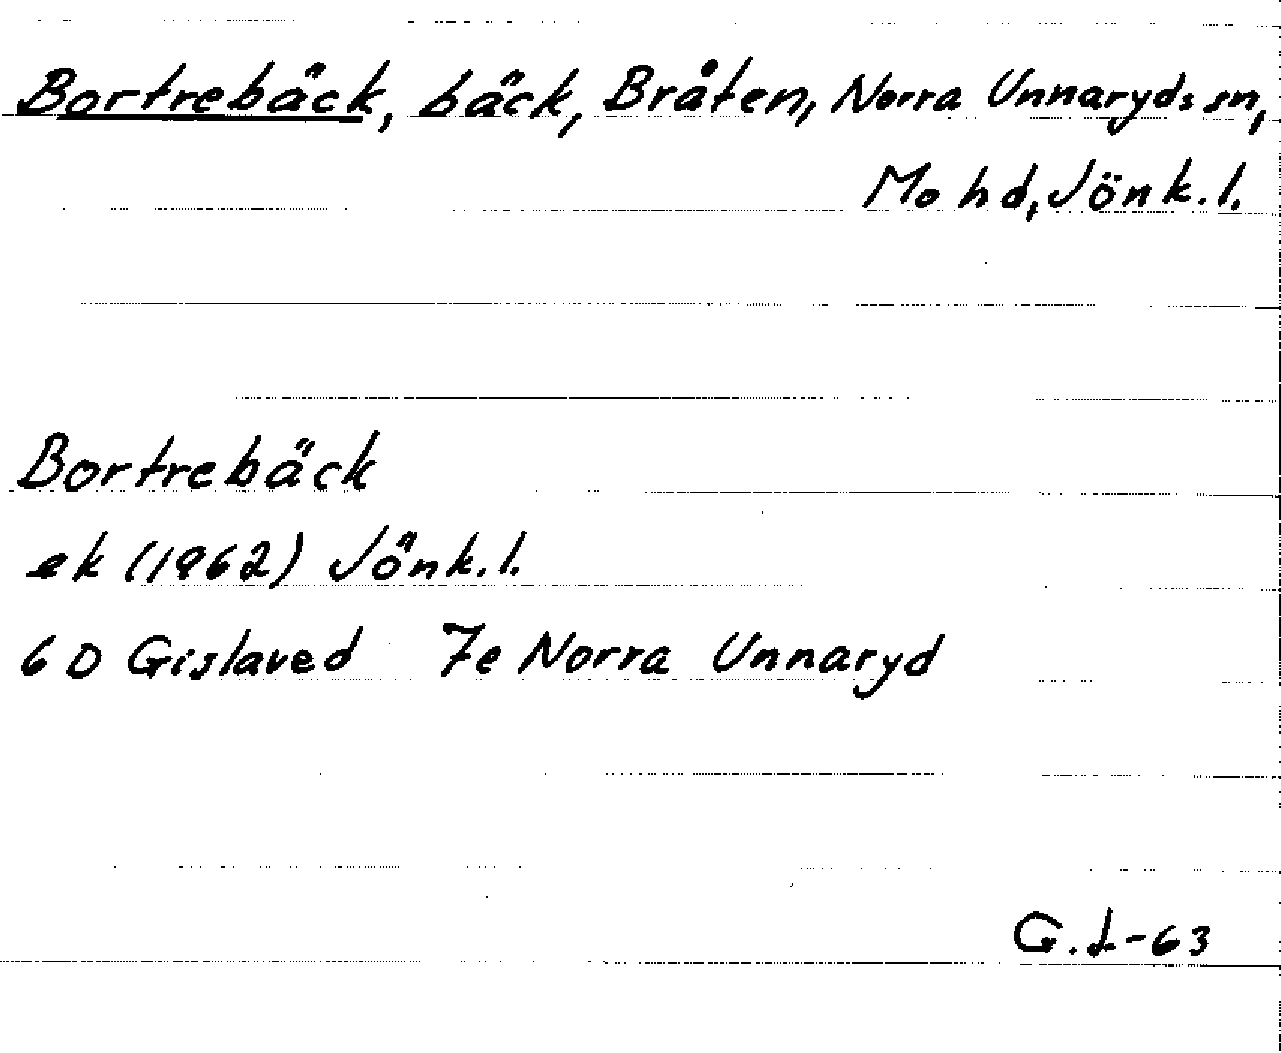 Bortrebäck, bäck, Bråten, Norra Unnaryds sn,
Mo hd, Jönk.l.
Bortrebäck
ek (1962) Jönk.l.
6 D Gislaved 7e Norra Unnaryd
G.L-63